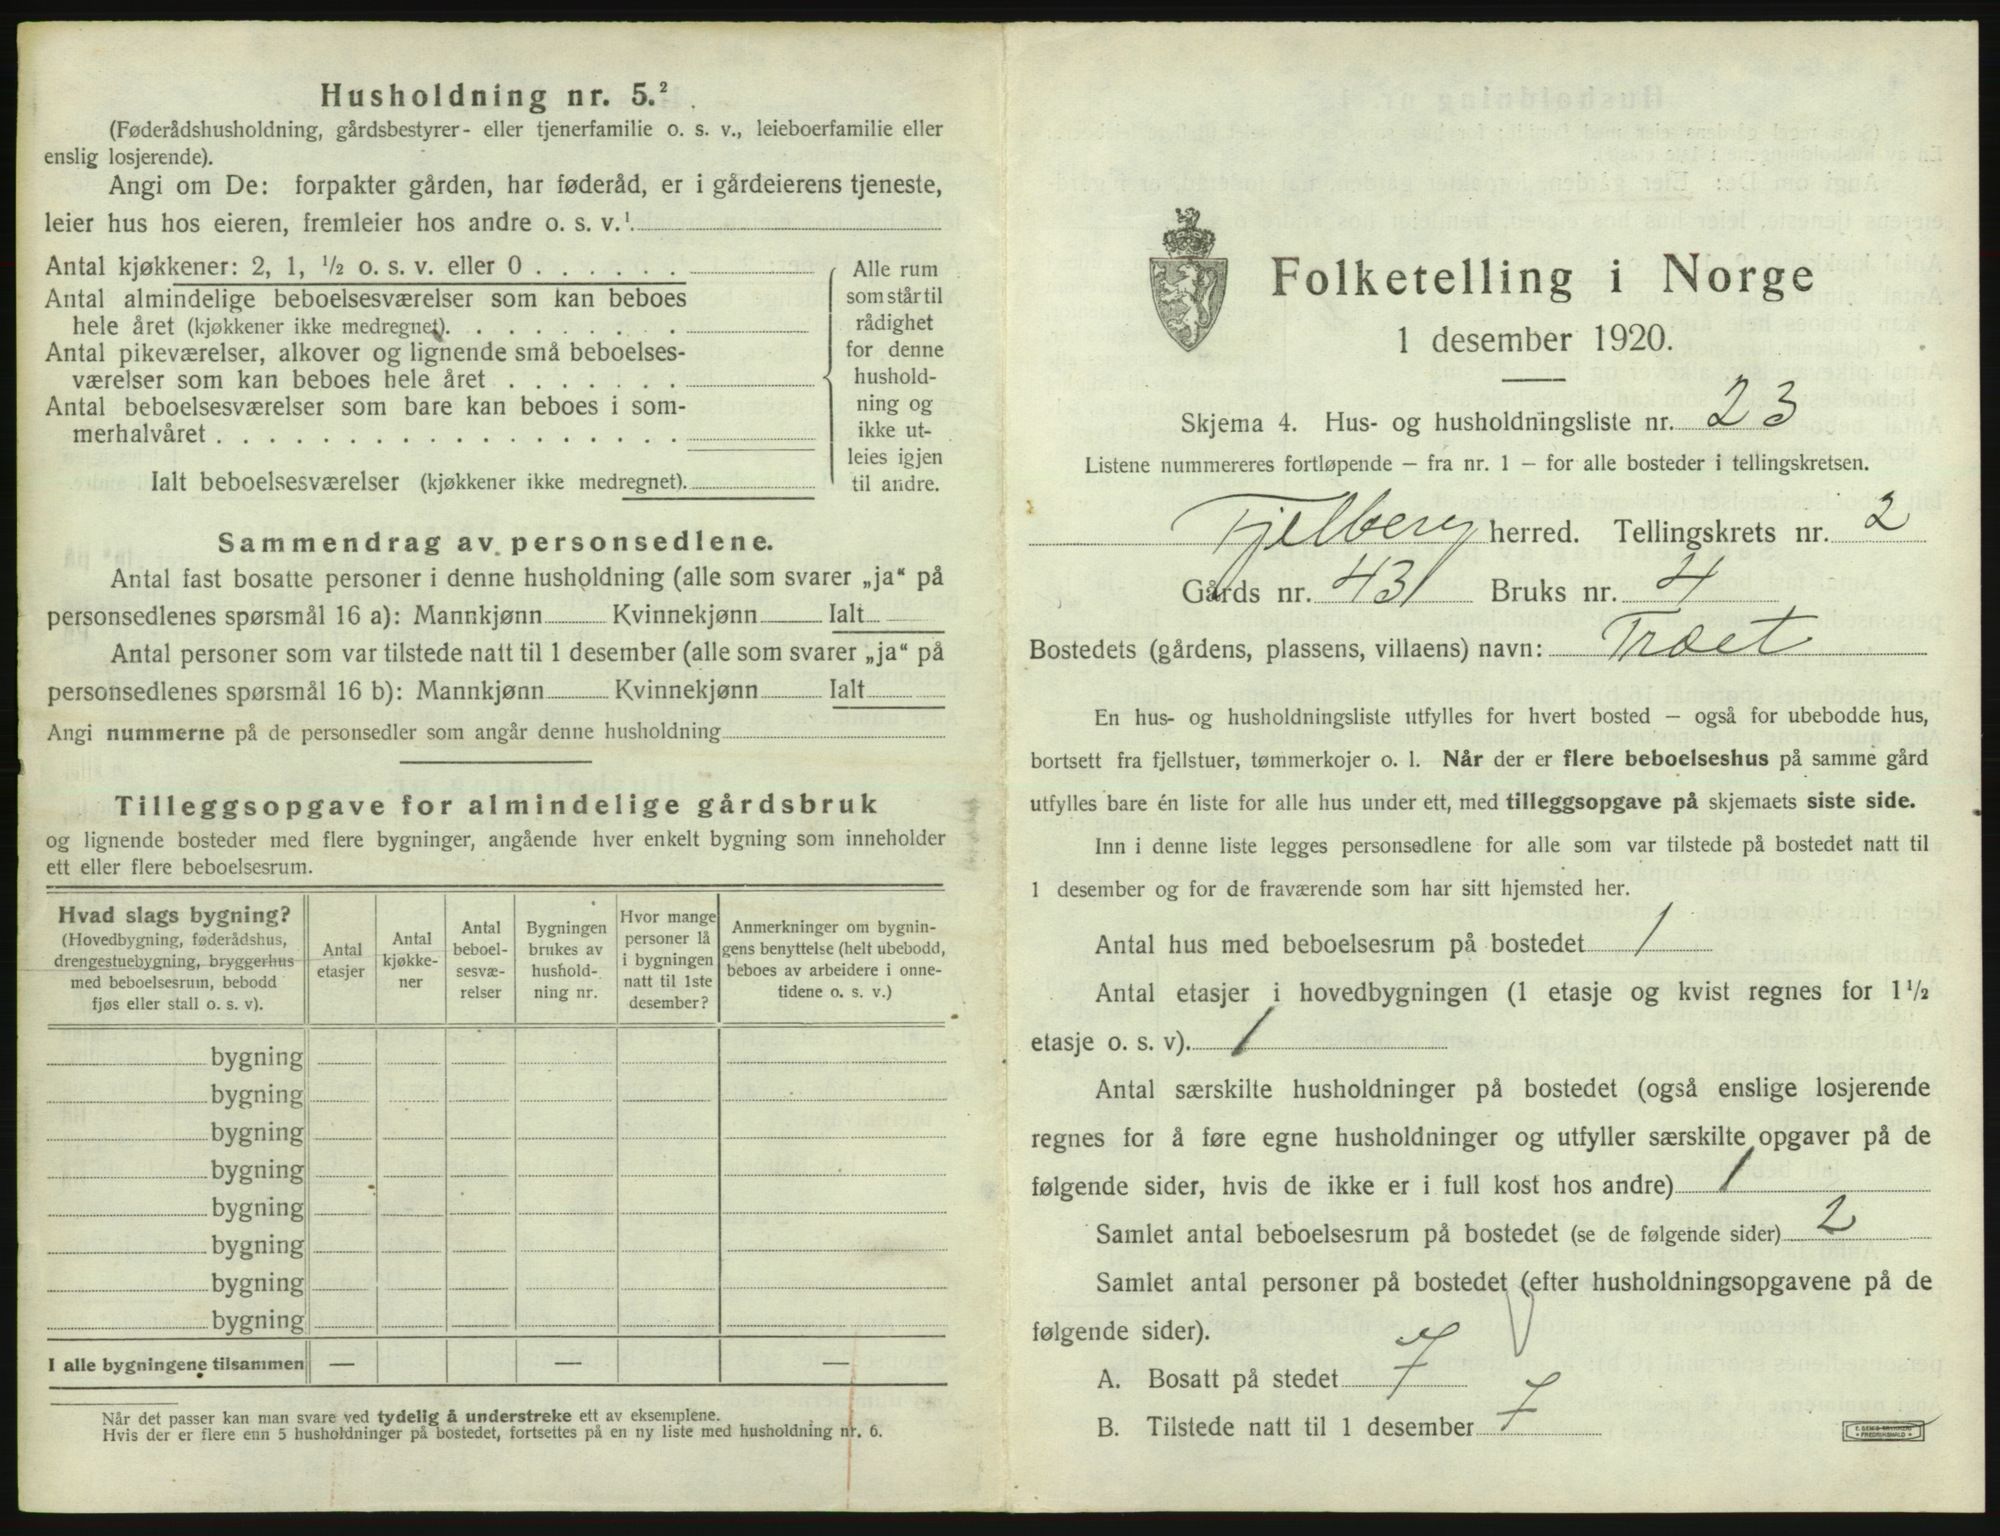 Husholdning nr. 5.²
(Føderådshusholdning, gårdsbestyrer- eller tjenerfamilie o. s. v., leieboerfamilie eller
enslig losjerende).
Angi om De: forpakter gården, har føderåd, er i gårdeierens tjeneste,
leier hus hos eieren, fremleier hos andre o. s. v.¹
Antal kjøkkener: 2, 1, ½ o. s. v. eller 0 . . . . . .
Antal almindelige beboelsesværelser som kan beboes
hele året (kjøkkener ikke medregnet). . . . . . . . .
Antal pikeværelser, alkover og lignende små beboelses-
værelser som kan beboes hele året . . . . . . .
Antal beboelsesværelser som bare kan beboes i som-
merhalvåret . . . . . . . . . . . . . . . . . .
Ialt beboelsesværelser (kjøkkener ikke medregnet).
Alle rum
som står til
rådighet
for denne
hushold-
ning og
ikke ut-
leies igjen
til andre.
Sammendrag av personsedlene.
Antal fast bosatte personer i denne husholdning (alle som svarer „ja“ på
personsedlenes spørsmål 16 a): Mannkjønn Kvinnekjønn Ialt
Antal personer som var tilstede natt til 1 desember (alle som svarer „ja“ på
personsedlenes spørsmål 16 b): Mannkjønn Kvinnekjønn Ialt
Angi nummerne på de personsedler som angår denne husholdning
Tilleggsopgave for almindelige gårdsbruk
og lignende bosteder med flere bygninger, angående hver enkelt bygning som inneholder
ett eller flere beboelsesrum.
Hvad slags bygning?
(Hovedbygning, føderådshus,
drengestuebygning, bryggerhus
med beboelsesrum, bebodd
fjøs eller stall o. s. v).
Antal
etasjer
Antal
kjøkke-
ner
Antal
beboel-
sesvæ-
relser
Bygningen
brukes av
hushold-
ning nr.
Hvor mange
personer lå
i bygningen
natt til 1ste
desember?
Anmerkninger om bygnin-
gens benyttelse (helt ubebodd,
beboes av arbeidere i onne-
tidene o. s. v.)
bygning
bygning
bygning
bygning
bygning
bygning
bygning
bygning
I alle bygningene tilsammen — — —
Når det passer kan man svare ved tydelig å understreke ett av eksemplene.
Hvis der er flere enn 5 husholdninger på bostedet, fortsettes på en ny liste med husholdning nr. 6.
Folketelling i Norge
1 desember 1920.
Skjema 4. Hus- og husholdningsliste nr. 23
Listene nummereres fortløpende – fra nr. 1 – for alle bosteder i tellingskretsen.
Fjelberg herred. Tellingskrets nr. 2
Gårds nr. 431 Bruks nr. 4
Bostedets (gårdens, plassens, villaens) navn: Træet
En hus- og husholdningsliste utfylles for hvert bosted – også for ubebodde hus,
bortsett fra fjellstuer, tømmerkojer o. l. Når der er flere beboelseshus på samme gård
utfylles bare én liste for alle hus under ett, med tilleggsopgave på skjemaets siste side.
Inn i denne liste legges personsedlene for alle som var tilstede på bostedet natt til
1 desember og for de fraværende som har sitt hjemsted her.
Antal hus med beboelsesrum på bostedet 1
Antal etasjer i hovedbygningen (1 etasje og kvist regnes for 1½
etasje o. s. v). 1
Antal særskilte husholdninger på bostedet (også enslige losjerende
regnes for å føre egne husholdninger og utfyller særskilte opgaver på de
følgende sider, hvis de ikke er i full kost hos andre) 1
Samlet antal beboelsesrum på bostedet (se de følgende sider) 2
Samlet antal personer på bostedet (efter husholdningsopgavene på de
følgende sider).
A. Bosatt på stedet 7
B. Tilstede natt til 1 desember 7